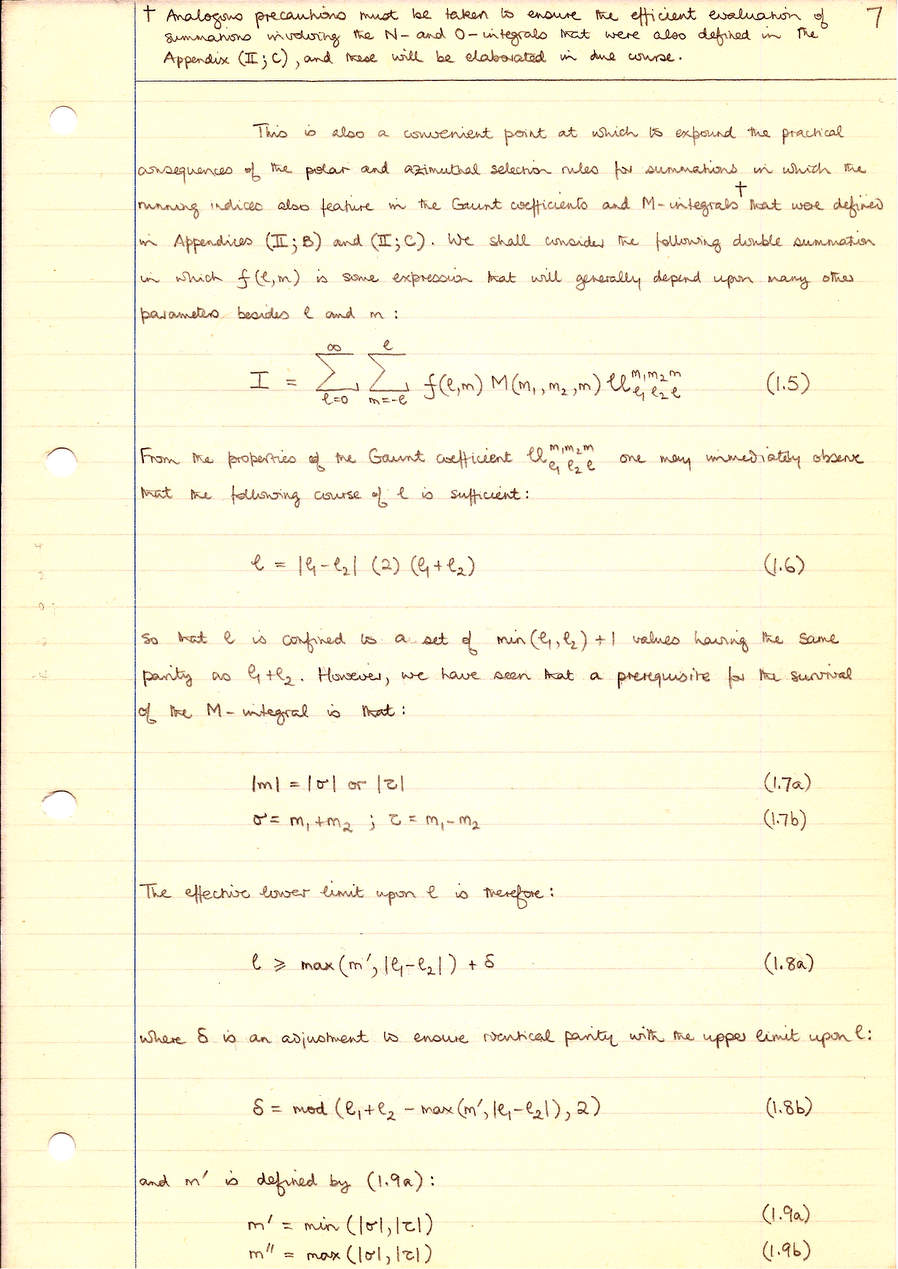 † Analogous precautions must be taken to ensure the efficient evaluation of 7
summations involving the N- and O-integrals that were also defined in the
Appendix (II; C), and these will be elaborated in due course.
This is also a convenient point at which to expound the practical
consequences of the polar and azimuthal selection rules for summations in which the
running indices also feature in the Gaunt coefficients and M-integrals† that were defined
in Appendices (II; B) and (II; C). We shall consider the following double summation
in which f(ℓ,m) is some expression that will generally depend upon many other
parameters besides ℓ and m :
I = ∑_{ℓ=0}^{∞} ∑_{m=-ℓ}^{ℓ} f(ℓ,m) M(m₁,m₂,m) 𝒰^{m₁m₂m}_{ℓ₁ℓ₂ℓ} (1.5)
From the properties of the Gaunt coefficient 𝒰^{m₁m₂m}_{ℓ₁ℓ₂ℓ} one may immediately observe
that the following course of ℓ is sufficient :
ℓ = |ℓ₁-ℓ₂| (2) (ℓ₁+ℓ₂) (1.6)
so that ℓ is confined to a set of min(ℓ₁,ℓ₂)+1 values having the same
parity as ℓ₁+ℓ₂. However, we have seen that a prerequisite for the survival
of the M-integral is that :
|m| = |σ| or |τ| (1.7a)
σ = m₁+m₂ ; τ = m₁-m₂ (1.7b)
The effective lower limit upon ℓ is therefore :
ℓ ⩾ max(m′, |ℓ₁-ℓ₂|) + δ (1.8a)
where δ is an adjustment to ensure identical parity with the upper limit upon ℓ :
δ = mod (ℓ₁+ℓ₂ - max(m′, |ℓ₁-ℓ₂|), 2) (1.8b)
and m′ is defined by (1.9a) :
m′ = min (|σ|, |τ|) (1.9a)
m″ = max (|σ|, |τ|) (1.9b)